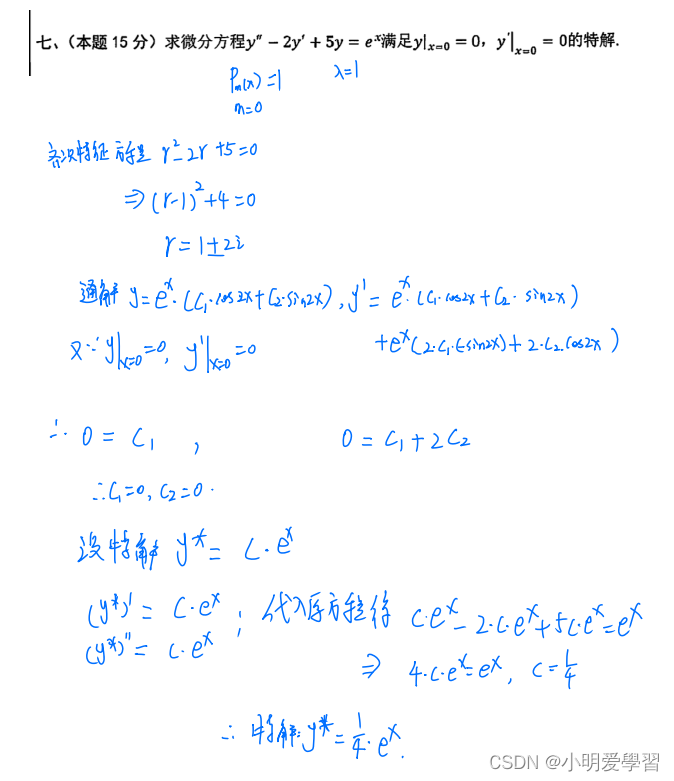 七、(本题 15 分) 求微分方程y″ − 2y′ + 5y = eˣ满足y|ₓ₌₀ = 0, y′|ₓ₌₀ = 0的特解.
Pₘ(x)=1 λ=1
m=0
齐次特征方程 r²−2r+5=0
⇒ (r−1)²+4=0
r=1±2i
通解 y=eˣ·(C₁·cos2x+C₂·sin2x), y′=eˣ·(C₁·cos2x+C₂·sin2x)
+eˣ(2·C₁·(−sin2x)+2·C₂·cos2x)
又∵ y|ₓ₌₀=0, y′|ₓ₌₀=0
∴ 0 = C₁ , 0 = C₁+2C₂
∴C₁=0, C₂=0.
设特解 y* = C·eˣ
(y*)′ = C·eˣ ; 代入原方程得 C·eˣ−2·C·eˣ+5C·eˣ=eˣ
(y*)″ = C·eˣ
⇒ 4·C·eˣ=eˣ, C=1/4
∴ 特解: y*=1/4·eˣ.
CSDN @小明爱學習